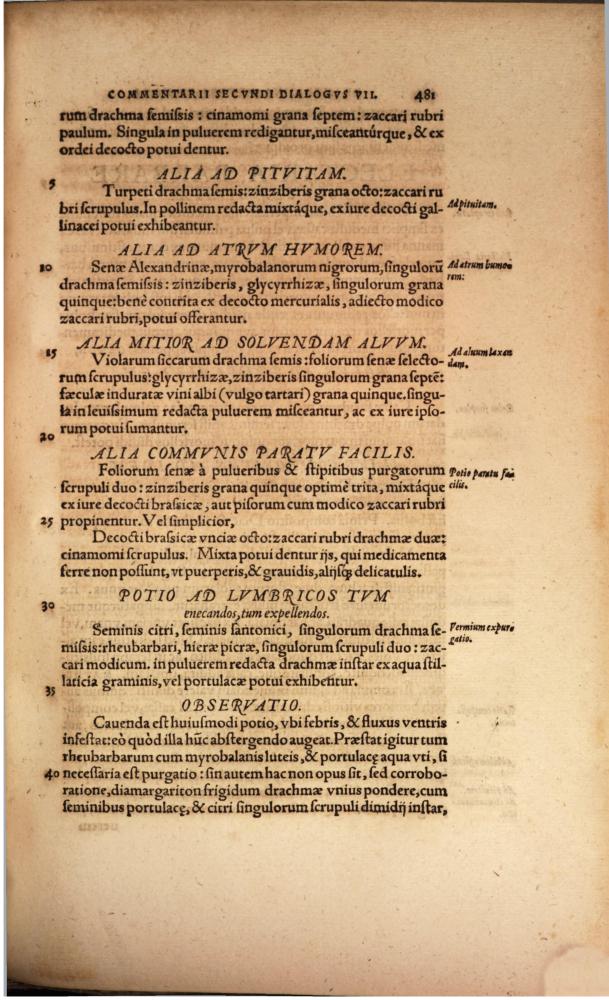 COMMENTARII SECVNDI DIALOGVS VII. 481
rum drachma semissis : cinamomi grana septem: zaccari rubri
paulum. Singula in puluerem redigantur, misceantúrque, & ex
ordei decocto potui dentur.
ALIA AD PITVITAM.
5
Turpeti drachma semis: zinziberis grana octo: zaccari ru
bri scrupulus. In pollinem redacta mixtáque, ex iure decocti gal-
Ad pituitam.
linacei potui exhibeantur.
ALIA AD ATRVM HVMOREM.
10 Senæ Alexandrinæ, myrobalanorum nigrorum, singulorū
Ad atrum humo-
drachma semissis : zinziberis, glycyrrhizæ, singulorum grana
rem:
quinque: benè contrita ex decocto mercurialis, adiecto modico
zaccari rubri, potui offerantur.
ALIA MITIOR AD SOLVENDAM ALVVM.
15 Violarum siccarum drachma semis : foliorum senæ selecto-
Ad aluum laxan
dam.
rum scrupulus: glycyrrhizæ, zinziberis singulorum grana septē:
fæculæ induratæ vini albi (vulgo tartari) grana quinque. singu-
la in leuissimum redacta puluerem misceantur, ac ex iure ipso-
rum potui sumantur.
20
ALIA COMMVNIS PARATV FACILIS.
Foliorum senæ à pulueribus & stipitibus purgatorum
Potio paratu fa-
scrupuli duo : zinziberis grana quinque optimè trita, mixtáque
cilis.
ex iure decocti brassicæ, aut pisorum cum modico zaccari rubri
25 propinentur. Vel simplicior,
Decocti brassicæ vnciæ octo: zaccari rubri drachmæ duæ:
cinamomi scrupulus. Mixta potui dentur ijs, qui medicamenta
ferre non possunt, vt puerperis, & grauidis, alijsq́; delicatulis.
POTIO AD LVMBRICOS TVM
30
enecandos, tum expellendos.
Seminis citri, seminis santonici, singulorum drachma se-
Vermium expur-
missis: rheubarbari, hieræ picræ, singulorum scrupuli duo : zac-
gatio.
cari modicum. in puluerem redacta drachmæ instar ex aqua stil-
laticia graminis, vel portulacæ potui exhibentur.
35
OBSERVATIO.
Cauenda est huiusmodi potio, vbi febris, & fluxus ventris
infestat: eò quòd illa hūc abstergendo augeat. Præstat igitur tum
rheubarbarum cum myrobalanis luteis, & portulacę aqua vti, si
40 necessaria est purgatio : sin autem hac non opus sit, sed corrobo-
ratione, diamargariton frigidum drachmæ vnius pondere, cum
seminibus portulacę, & citri singulorum scrupuli dimidij instar,